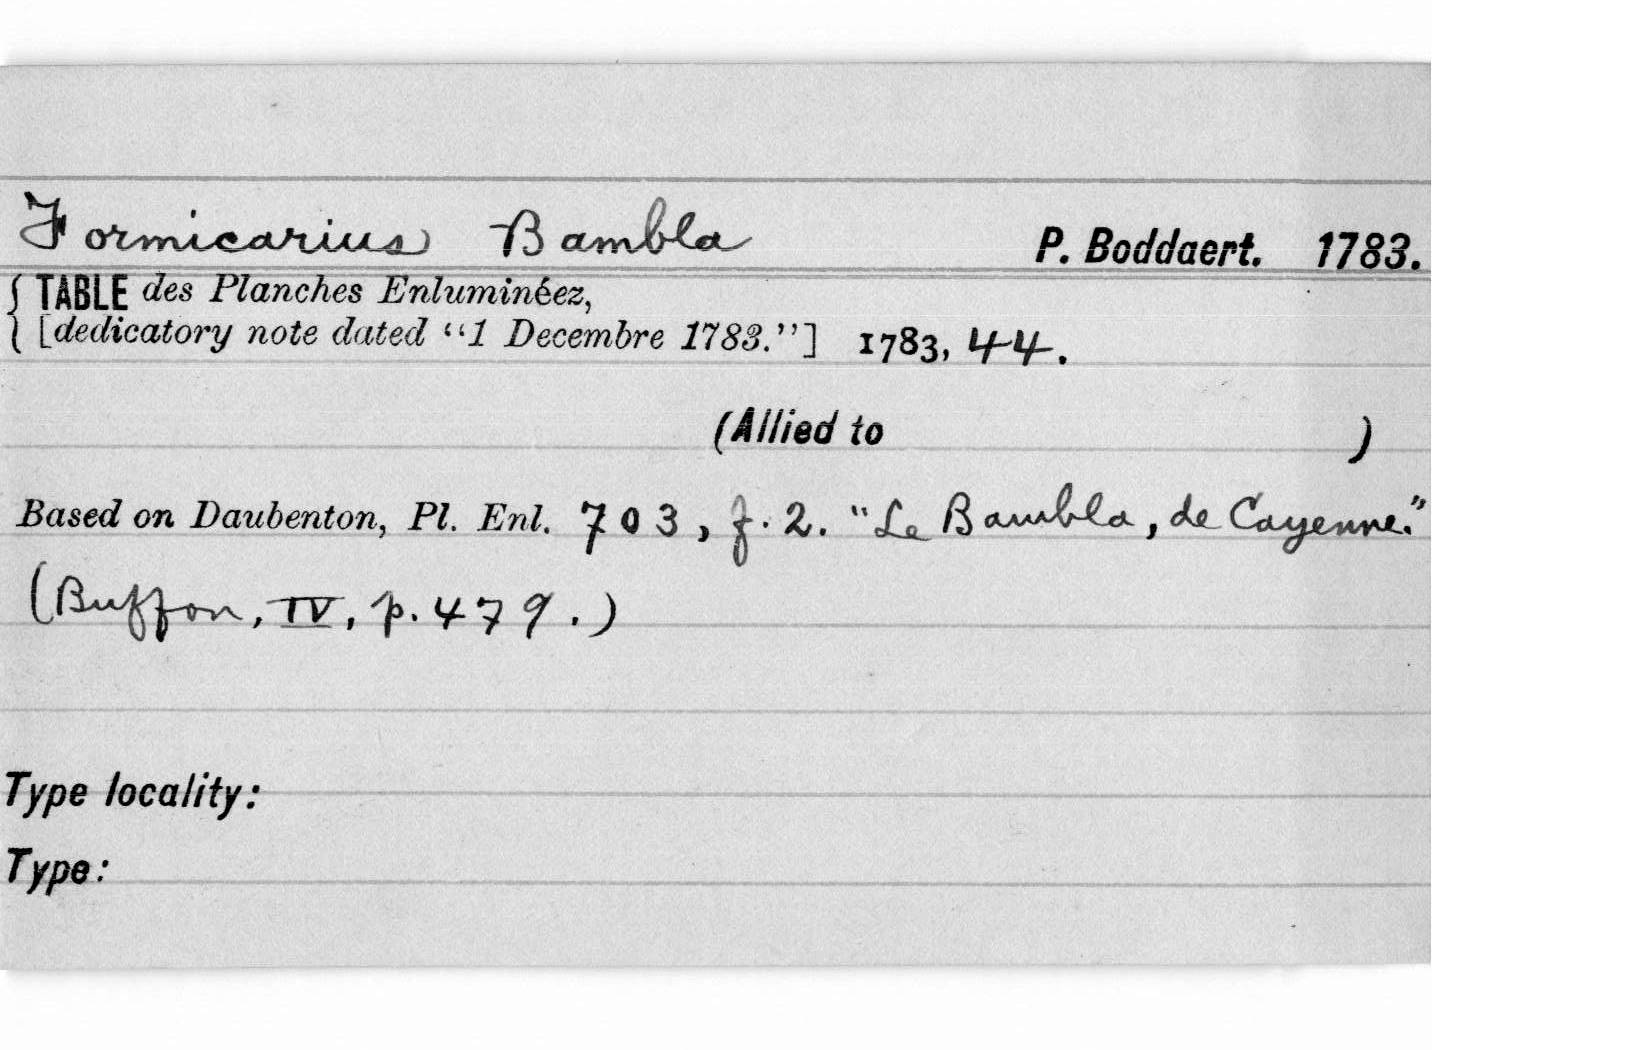 Formicarius Bambla P. Boddaert. 1783.
{ TABLE des Planches Enluminéez,
[dedicatory note dated “1 Decembre 1783.”] 1783, 44.
(Allied to )
Based on Daubenton, Pl. Enl. 703, f. 2. "Le Bambla, de Cayenne."
(Buffon, IV, p. 479.)
Type locality:
Type: